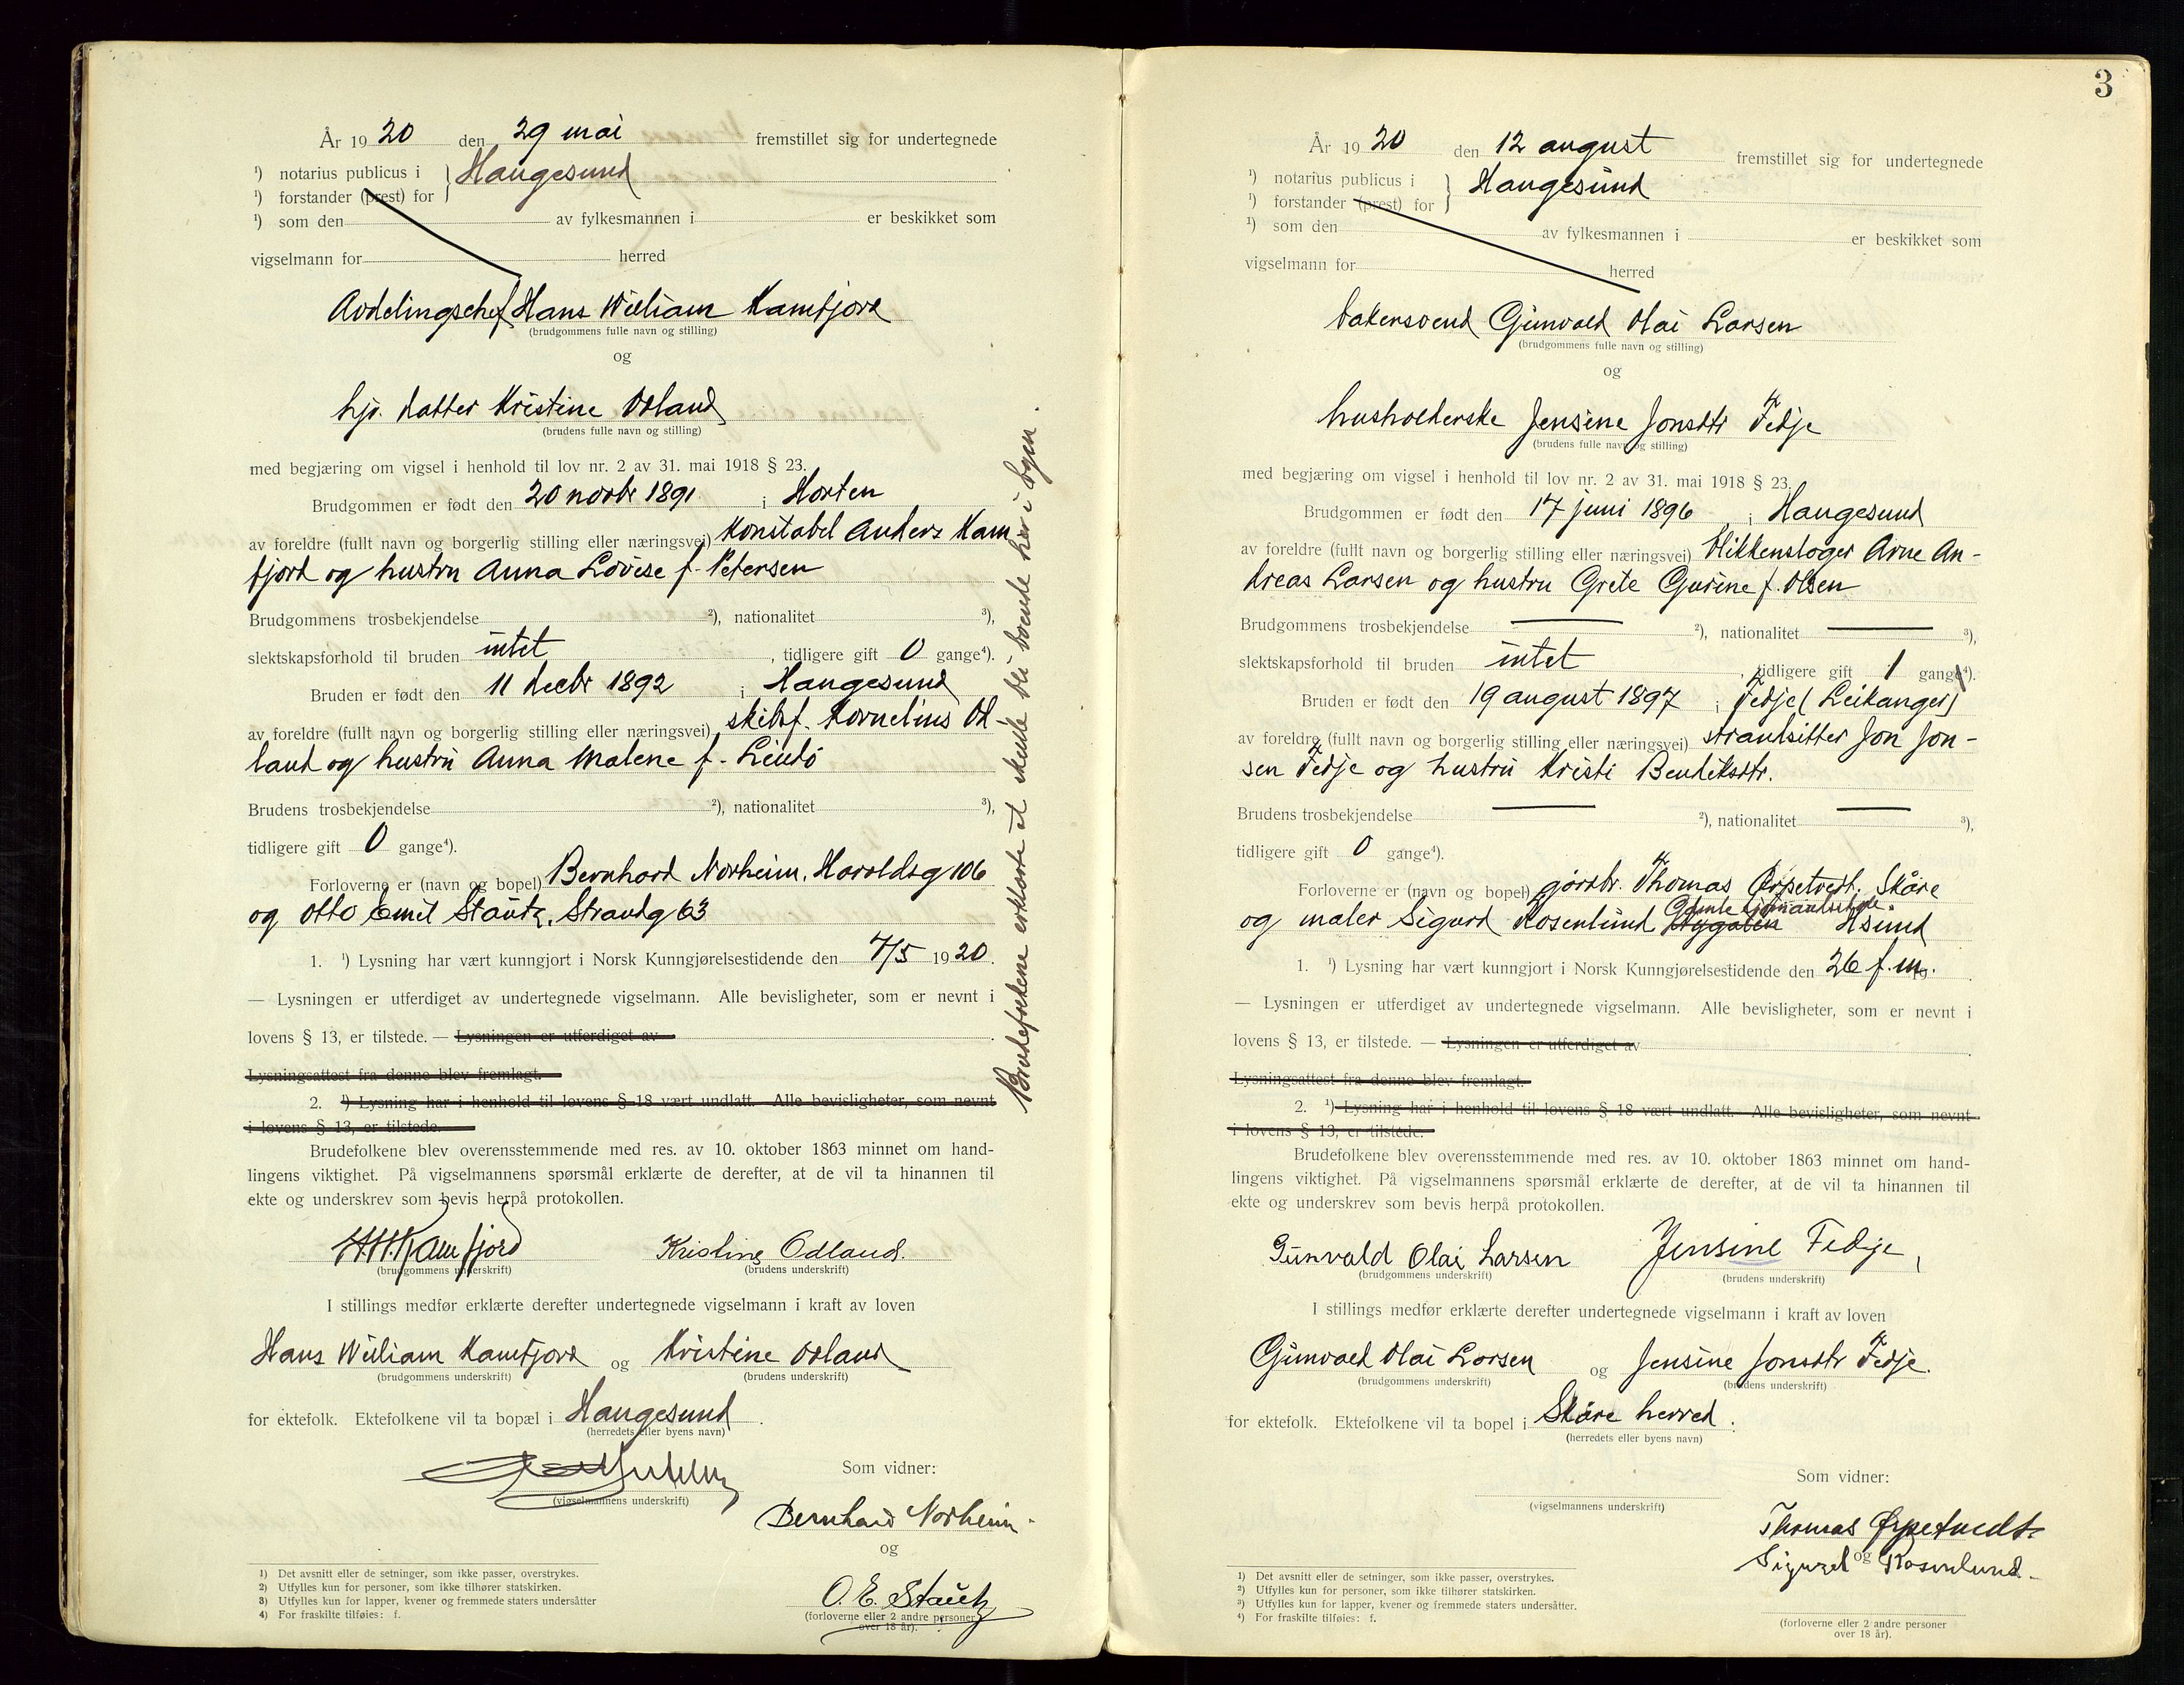 År 1920 den 29 mai fremstillet sig for undertegnede
¹) notarius publicus i } Haugesund
¹) forstander (prest) for
¹) som den av fylkesmannen i er beskikket som
vigselmann for herred
Avdelingschef Hans William Kamfjord
(brudgommens fulle navn og stilling)
og
hjv. datter Kristine Odland
(brudens fulle navn og stilling)
med begjæring om vigsel i henhold til lov nr. 2 av 31. mai 1918 § 23.
Brudgommen er født den 20 novbr 1891 i Horten
av foreldre (fullt navn og borgerlig stilling eller næringsvei) Konstabel Anders Kam
fjord og hustru Anna Lovise f. Petersen
Brudgommens trosbekjendelse ²), nationalitet ³),
slektskapsforhold til bruden intet, tidligere gift 0 gange⁴).
Bruden er født den 11 decbr 1892 i Haugesund
av foreldre (fullt navn og borgerlig stilling eller næringsvei) skibsf. Kornelius Od-
land og hustru Anna Malene f. Lindø
Brudens trosbekjendelse ²), nationalitet ³),
tidligere gift 0 gange⁴).
Forloverne er (navn og bopel) Bernhard Norheim, Haraldsg 106
og Otto Emil Stautz, Strandg 63
1. ¹) Lysning har vært kunngjort i Norsk Kunngjørelsestidende den 7/5 1920.
— Lysningen er utferdiget av undertegnede vigselmann. Alle bevisligheter, som er nevnt i
lovens § 13, er tilstede. — Lysningen er utferdiget av
Lysningsattest fra denne blev fremlagt.
2. ¹) Lysning har i henhold til lovens § 18 vært undlatt. Alle bevisligheter, som nevnt
i lovens § 13, er tilstede.
Brudefolkene blev overensstemmende med res. av 10. oktober 1863 minnet om hand-
lingens viktighet. På vigselmannens spørsmål erklærte de derefter, at de vil ta hinannen til
ekte og underskrev som bevis herpå protokollen.
H.W.Kamfjord Kristine Odland.
(brudgommens underskrift) (brudens underskrift)
I stillings medfør erklærte derefter undertegnede vigselmann i kraft av loven
Hans William Kamfjord og Kristine Odland
(brudgommens underskrift) (brudens underskrift)
for ektefolk. Ektefolkene vil ta bopæl i Haugesund.
(herredets eller byens navn)
Som vidner:
(vigselmannens underskrift)
Bernhard Norheim.
og
O. E. Stautz
(forloverne eller 2 andre personer
over 18 år).
1) Det avsnitt eller de setninger, som ikke passer, overstrykes.
2) Utfylles kun for personer, som ikke tilhører statskirken.
3) Utfylles kun for lapper, kvener og fremmede staters undersåtter
4) For fraskilte tilføies: f.
Brudefolkene erklærte at skulle bli boende her i byen.
3
År 1920 den 12 august fremstillet sig for undertegnede
¹) notarius publicus i } Haugesund
¹) forstander (prest) for
¹) som den av fylkesmannen i er beskikket som
vigselmann for herred
bakersvend Gunvald Olai Larsen
(brudgommens fulle navn og stilling)
og
husholderske Jensine Jonsdtr Fedje
(brudens fulle navn og stilling)
med begjæring om vigsel i henhold til lov nr. 2 av 31. mai 1918 § 23.
Brudgommen er født den 17 juni 1896 i Haugesund
av foreldre (fullt navn og borgerlig stilling eller næringsvei) blikkenslager Arne An-
dreas Larsen og hustru Grete Gurine f. Olsen
Brudgommens trosbekjendelse — ²), nationalitet — ³),
slektskapsforhold til bruden intet, tidligere gift 1 gange⁴).
Bruden er født den 19 august 1897 i Fedje (Leikanger)
av foreldre (fullt navn og borgerlig stilling eller næringsvei) strandsitter Jon Jon-
sen Fedje og hustru Kristi Bendiksdtr.
Brudens trosbekjendelse — ²), nationalitet — ³),
tidligere gift 0 gange⁴).
Forloverne er (navn og bopel) gårdbr. Thomas Ørpetvedt, Skåre
Gamle
og maler Sigurd Rosenlund Nygaten Hsund
1. ¹) Lysning har vært kunngjort i Norsk Kunngjørelsestidende den 26 f. m.
— Lysningen er utferdiget av undertegnede vigselmann. Alle bevisligheter, som er nevnt i
lovens § 13, er tilstede. — Lysningen er utferdiget av
Lysningsattest fra denne blev fremlagt.
2. ¹) Lysning har i henhold til lovens § 18 vært undlatt. Alle bevisligheter, som nevnt
i lovens § 13, er tilstede.
Brudefolkene blev overensstemmende med res. av 10. oktober 1863 minnet om hand-
lingens viktighet. På vigselmannens spørsmål erklærte de derefter, at de vil ta hinannen til
ekte og underskrev som bevis herpå protokollen.
Gunvald Olai Larsen Jensine Fedje
(brudgommens underskrift) (brudens underskrift)
I stillings medfør erklærte derefter undertegnede vigselmann i kraft av loven
Gunvald Olai Larsen og Jensine Jonsdtr Fedje.
(brudgommens underskrift) (brudens underskrift)
for ektefolk. Ektefolkene vil ta bopel i Skåre herred.
(herredets eller byens navn)
Som vidner:
(vigselmannens underskrift)
Thomas Ørpetvedt
og
Sigurd Rosenlund.
(forloverne eller 2 andre personer
over 18 år).
1) Det avsnitt eller de setninger, som ikke passer, overstrykes.
2) Utfylles kun for personer, som ikke tilhører statskirken.
3) Utfylles kun for lapper, kvener og fremmede staters undersåtter.
4) For fraskilte tilføies: f.